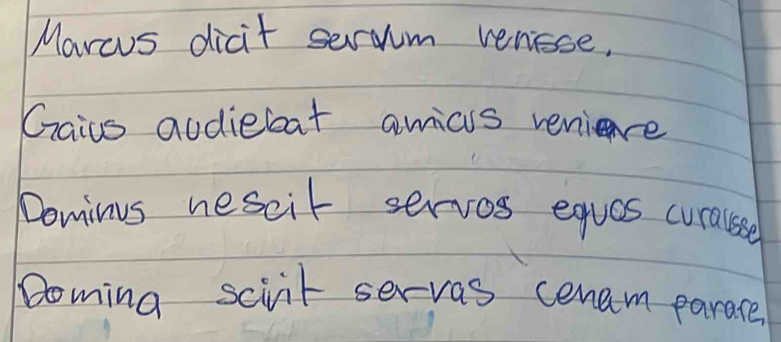 Marcus dicit servum venisse.
Gaius audiebat amicus veniere
Dominus nescit servos equos curavisse
Domina scivit servas cenam parare.